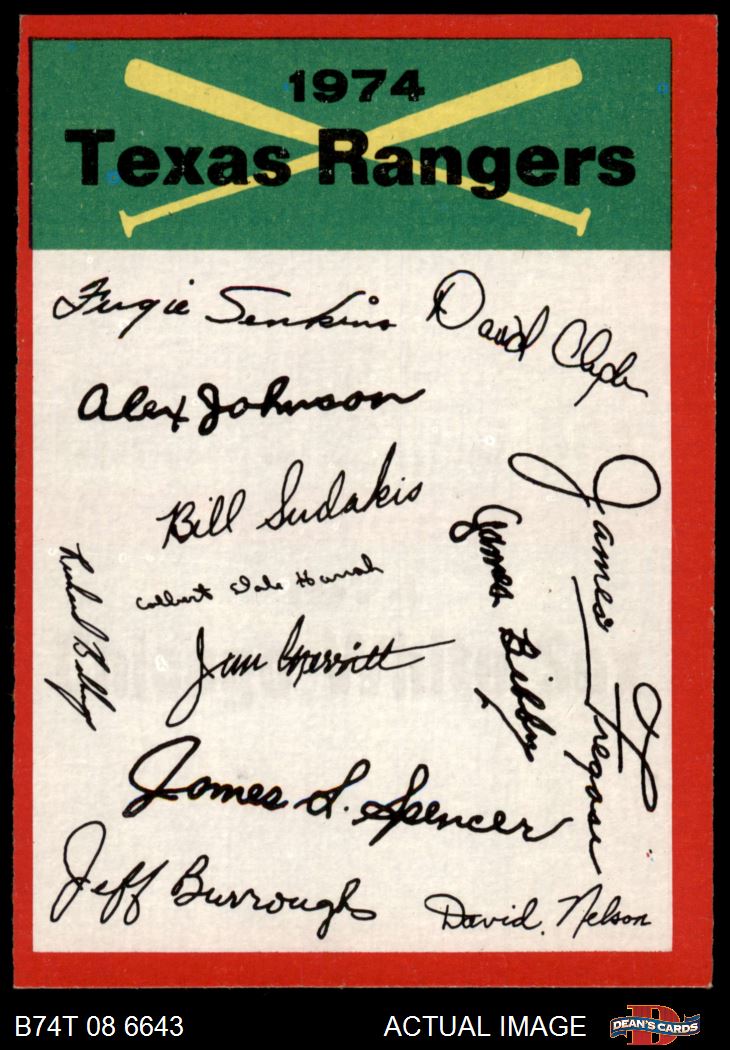 1974
Texas Rangers
Fergie Jenkins
David Clyde
Alex Johnson
Bill Sudakis
James Fregosi
James Bibby
Colbert Dale Harrah
Richard Billings
Jim Merritt
James L. Spencer
Jeff Burroughs
David. Nelson
B74T 08 6643
ACTUAL IMAGE
DEAN'S CARDS